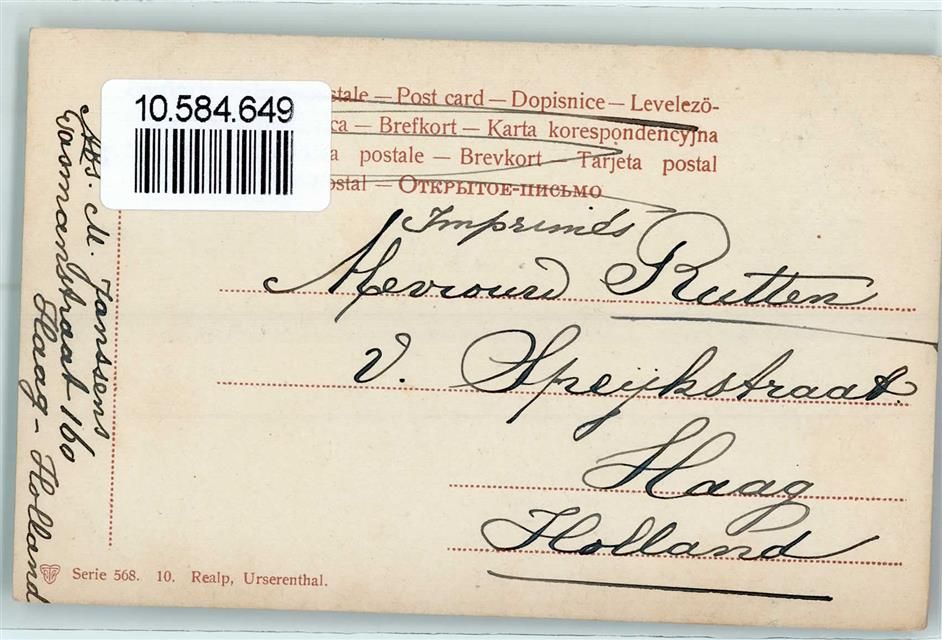 10.584.649
stale — Post card — Dopisnice — Levelező-
ca — Brefkort — Karta korespondencyjna
a postale — Brevkort — Tarjeta postal
ostal — Открытое-письмо
Imprimés
Mevrouw Rutten
v. Speijkstraat.
Haag
Holland
Abs. M. Janssens
160
Haag - Holland
Serie 568. 10. Realp, Urserenthal.